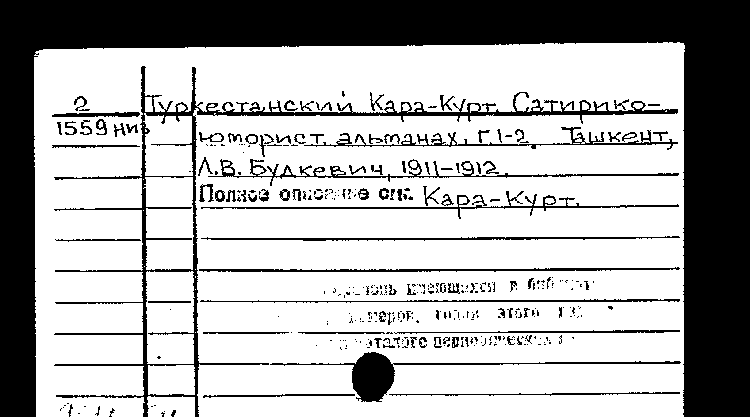 2 Туркестанский Кара-Курт. Сатирико-
1559 ниж юморист. альманах, Г.1-2. Ташкент,
Л.В. Будкевич, 1911-1912.
Полное описание см. Кара-Курт.
имеющихся в
номеров, этого
каталоге периодических